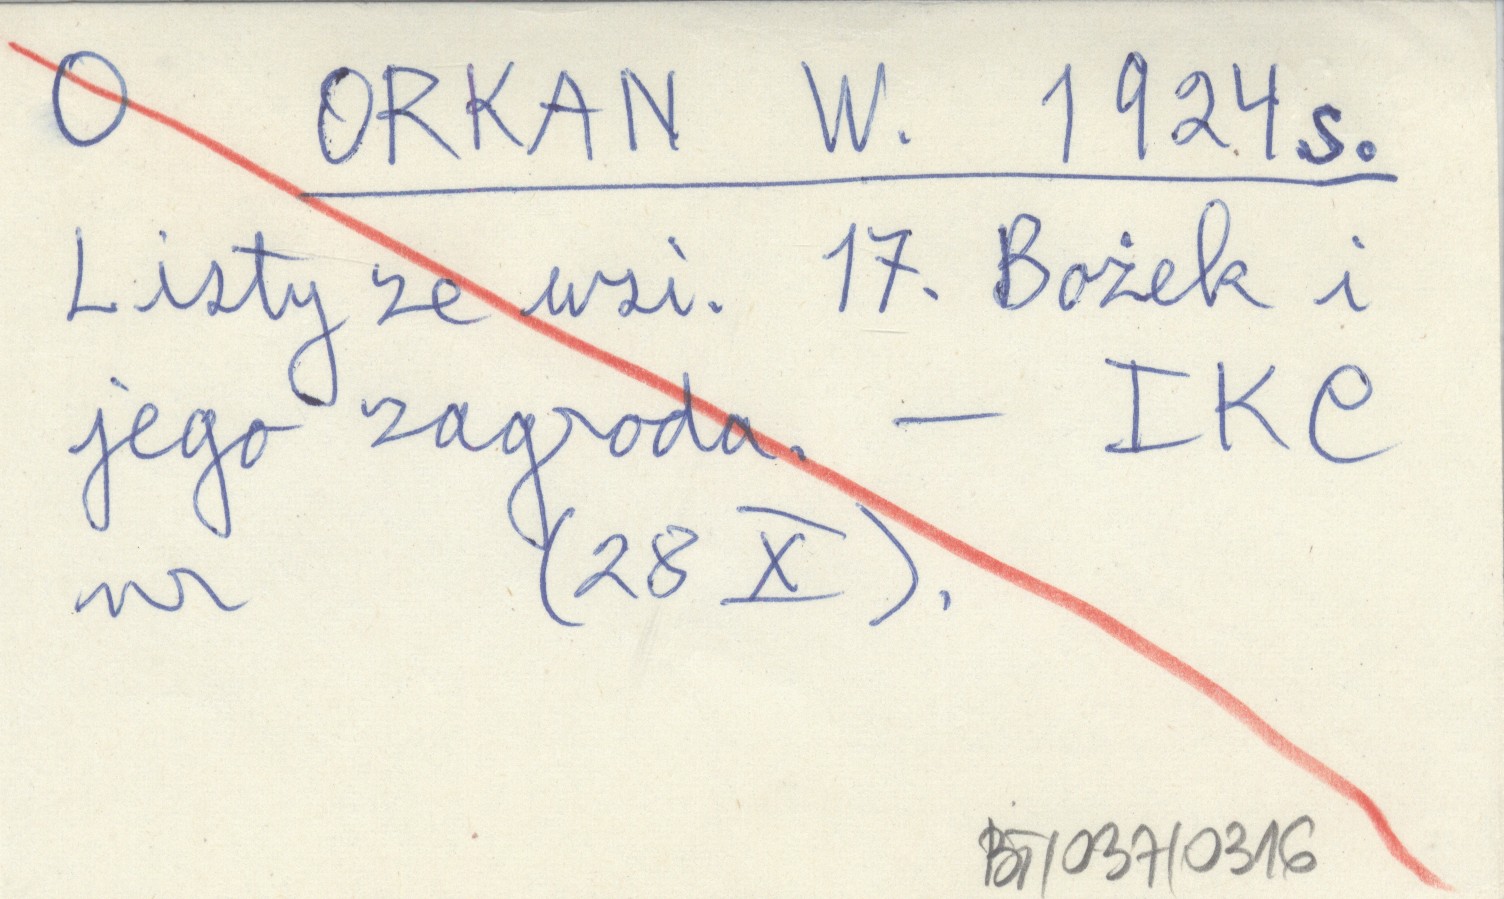 O ORKAN W. 1924s.
Listy ze wsi. 17. Bożek i
jego zagroda. — IKC
nr (28 X).
BT/037/0316